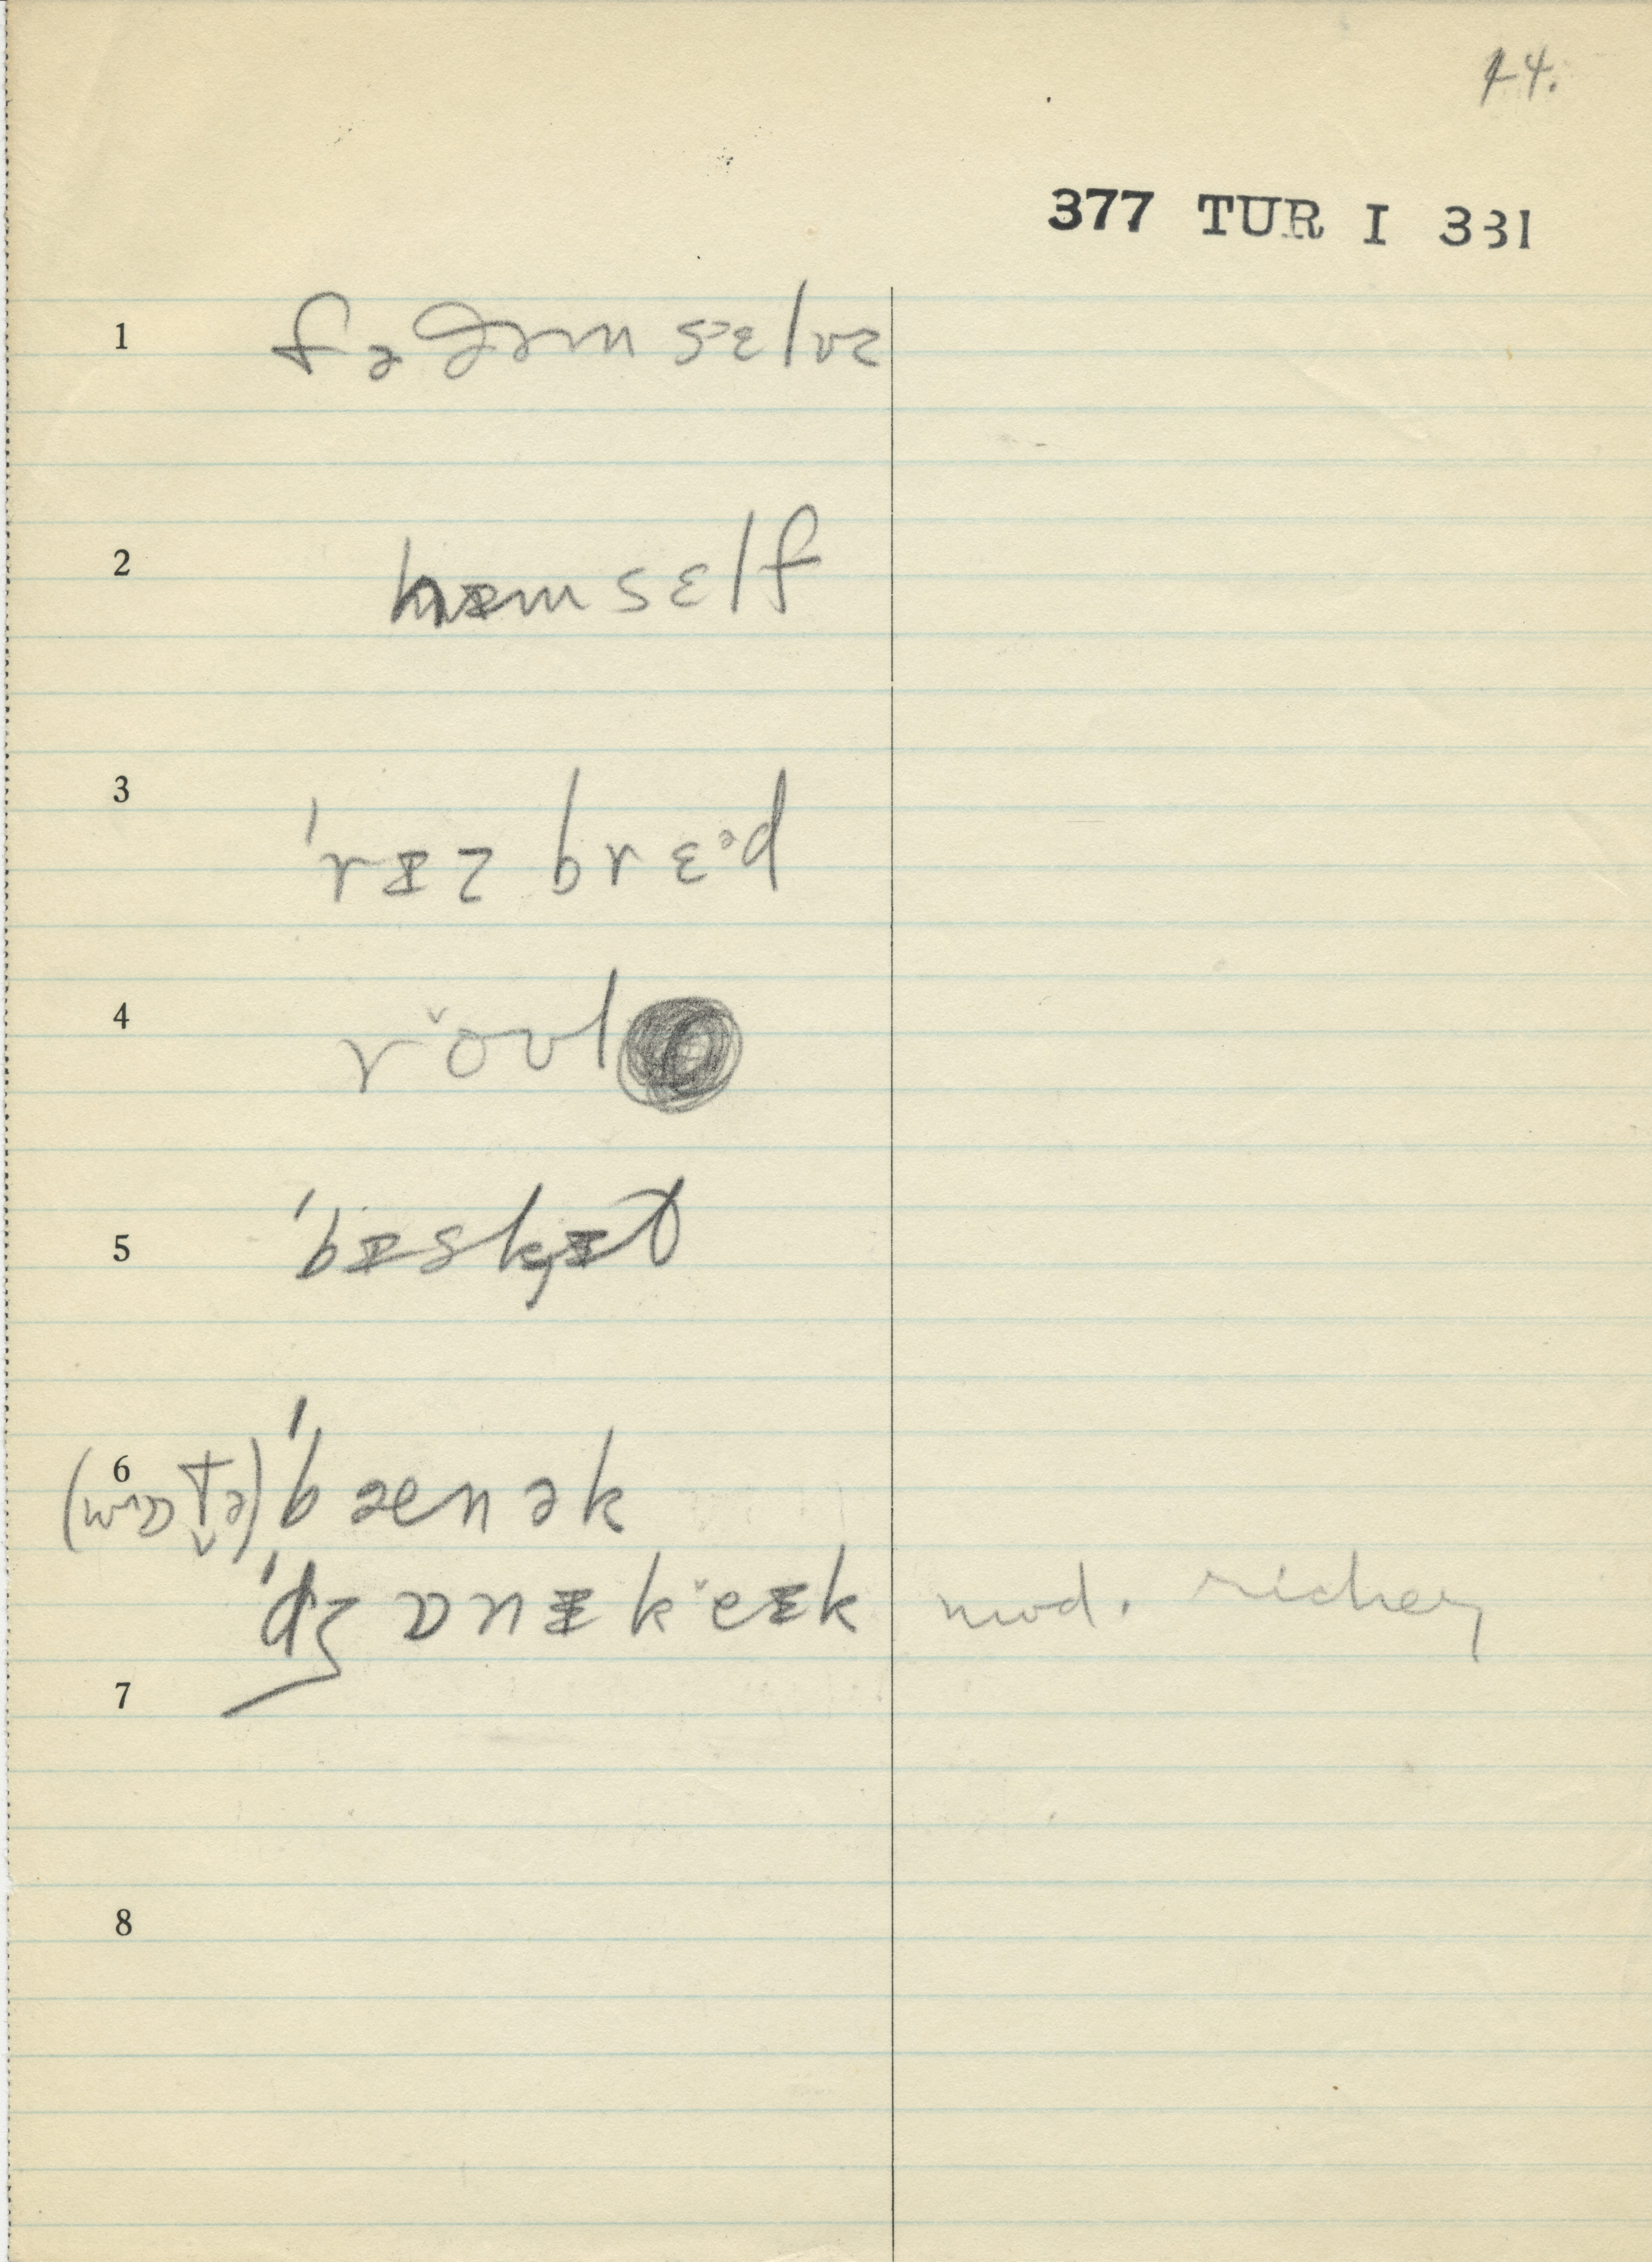 44.
377 TUR I 331
1 fə ðəm sɛlvz
2 hɪ̵mself
3 ˈrɪ̵z brɛᵊd
4 r o˅ʊl
5 ˈbɪ̵sk̡ɪ̵t
6 ˈbænək
ˈdʒɒnɪ̵ k e˅ɪ̵k mod.
7
8